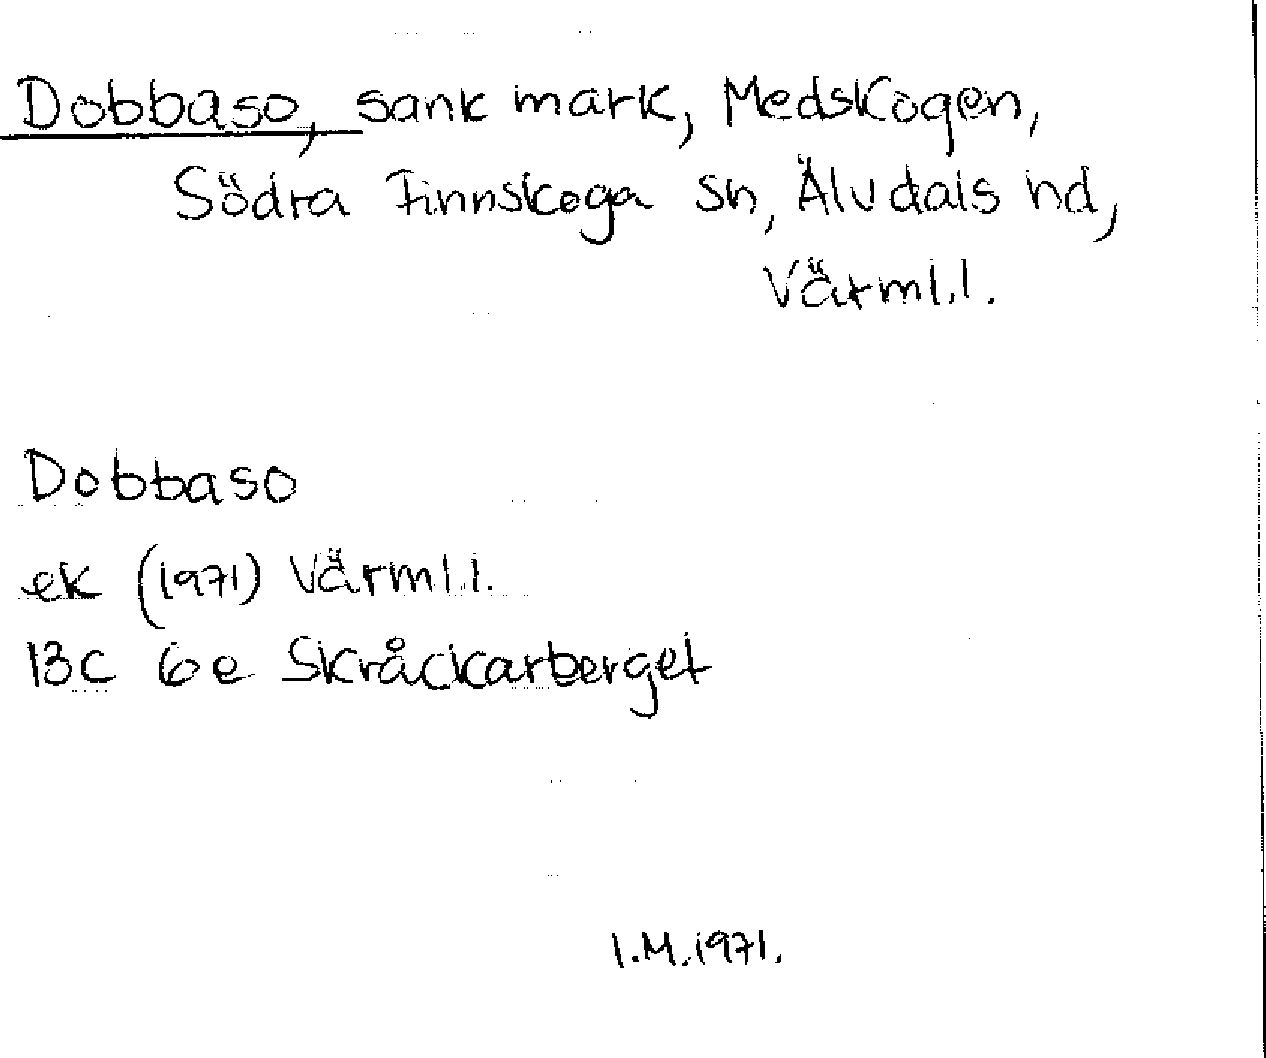 Dobbaso, sank mark, Medskogen,
Södra Finnskoga sn, Älvdals hd,
Värml.l.
Dobbaso
ek (1971) Värml.l.
13C 6e Skråckarberget
I.M.1971.